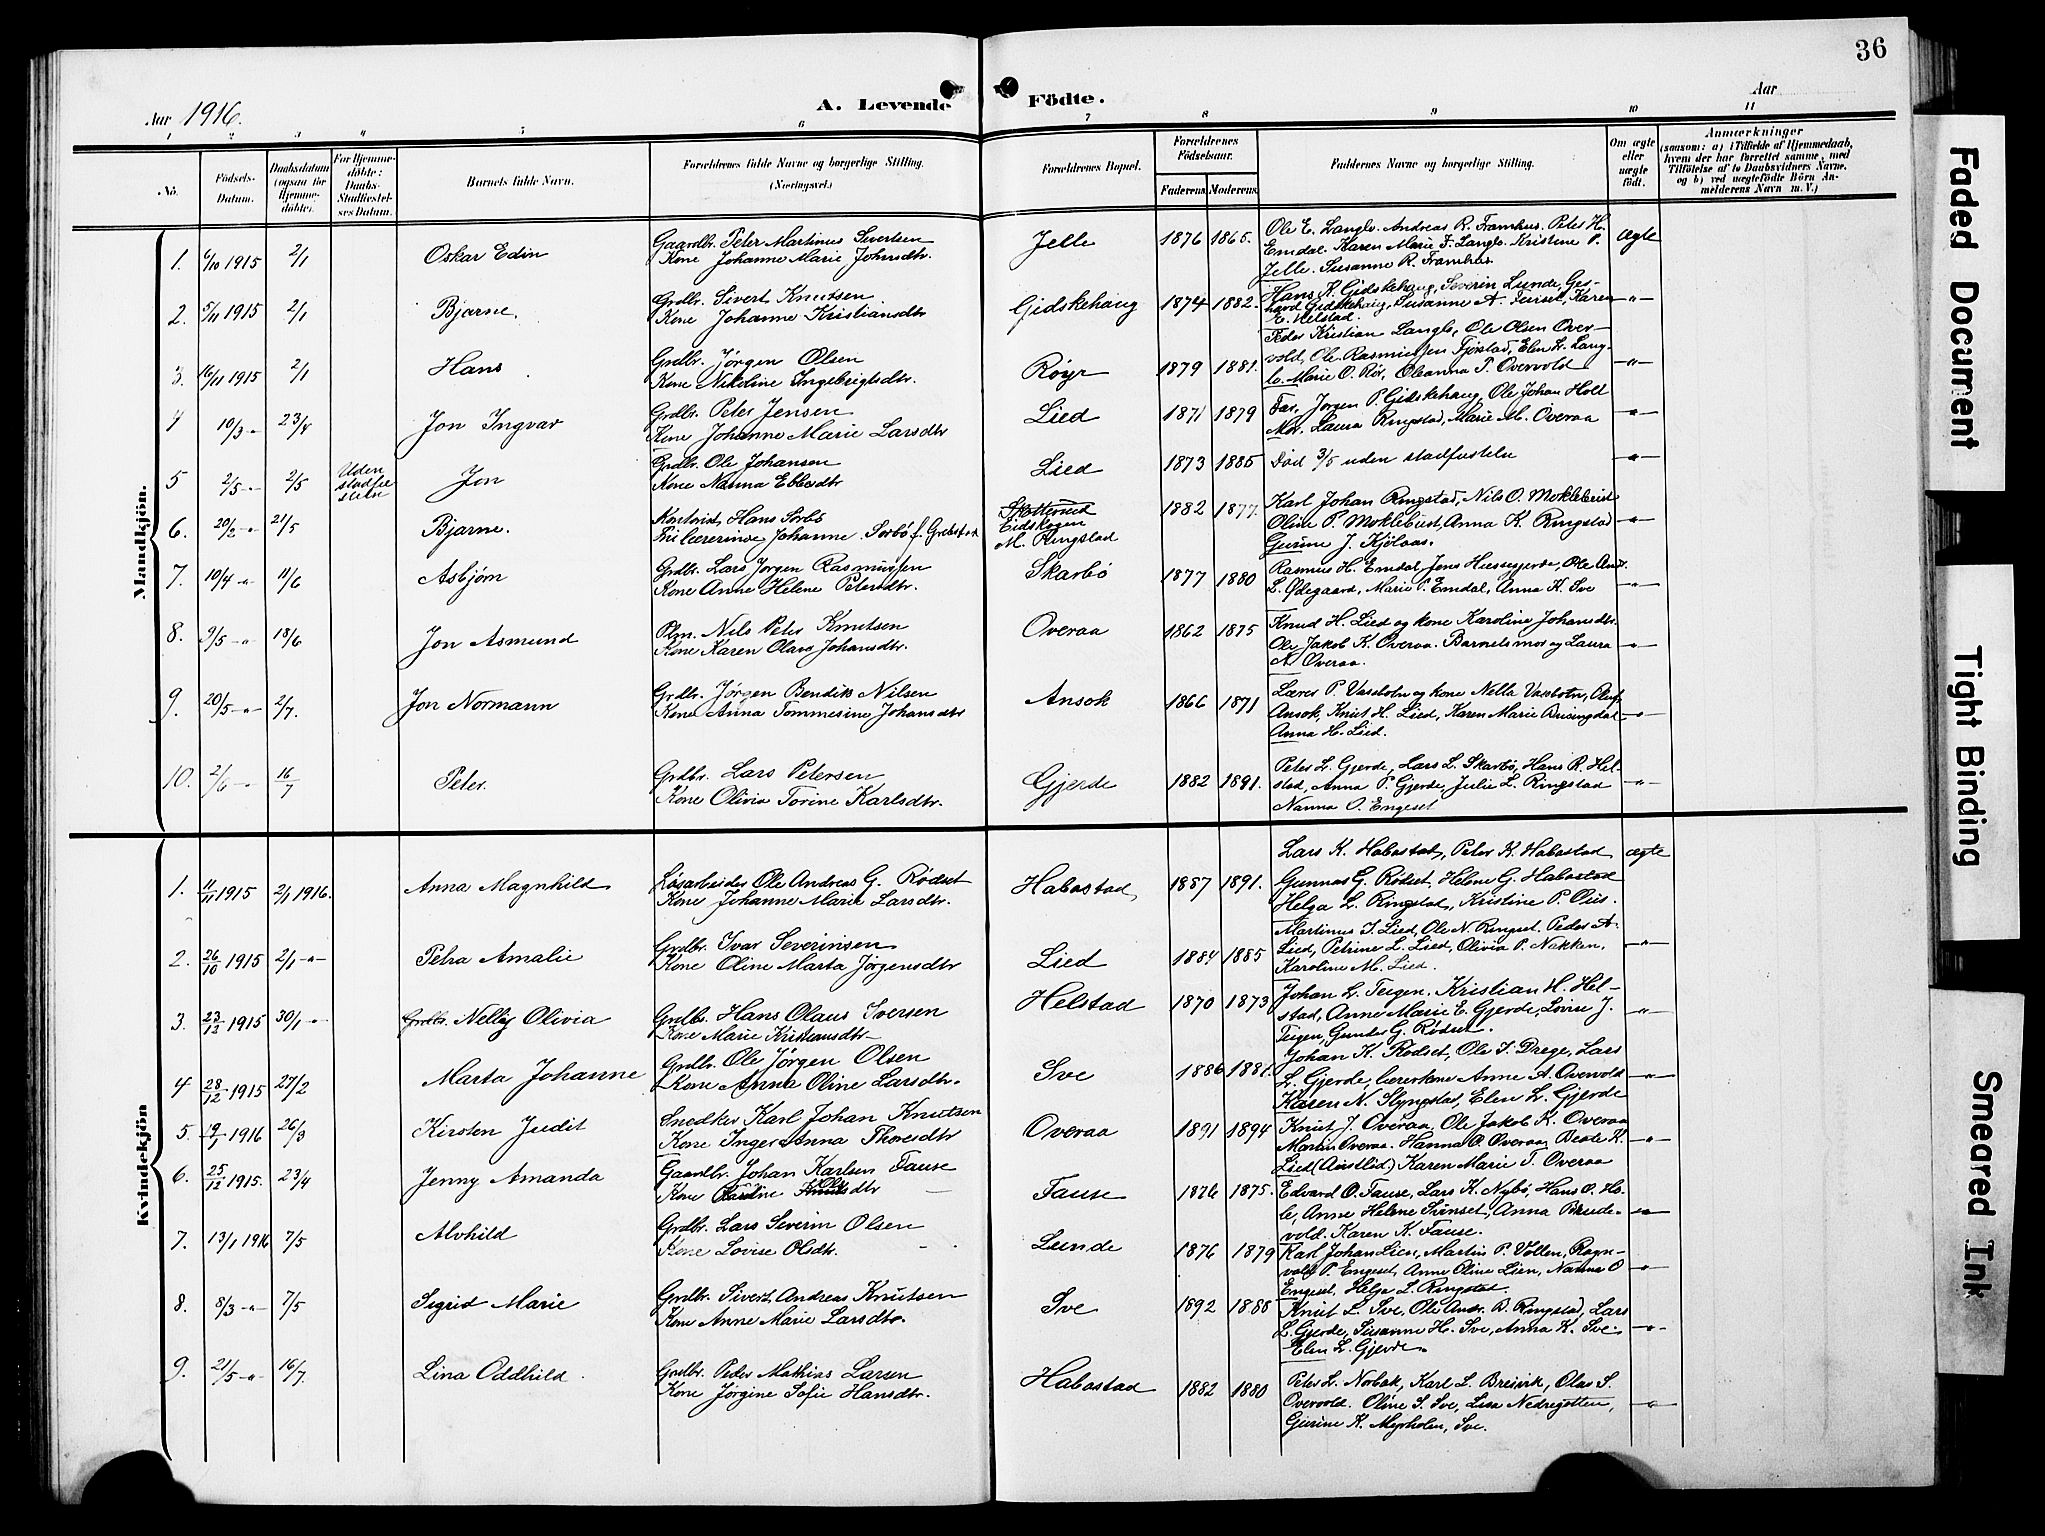 36
Aar 1916.
A. Levende Födte.
Aar
1 2 3 4 5 6 7 8 9 10 11
No.
Födsels-Datum.
Daabsdatum (ogsaa for Hjemmedöbte).
For Hjemmedöbte: Daabs-Stadfæstelses Datum.
Barnets fulde Navn.
Forældrenes fulde Navne og borgerlige Stilling. (Næringsvei.)
Forældrenes Bopæl.
Forældrenes Födselsaar.
Faderens. Moderens.
Faddernes Navne og borgerlige Stilling.
Om ægte eller uægte födt.
Anmærkninger
(saasom: a) i Tilfælde af Hjemmedaab, hvem der har forrettet samme, med Tilföielse af to Daabsvidners Navne. og b) ved uægtefödte Börn Anmelderens Navn m. V.)
Mandkjön.
1. 6/10 1915 2/1 Oskar Edin Gaardbr. Peter Martinus Sivertsen Jelle 1876 1865. Ole E. Langlo. Andreas R. Framhus. Peter H. ægte
Kone Johanne Marie Johnsdtr. Emdal. Karen Marie F. Langlo. Kristine P.
Jelle. Susanne R. Framhus.
2. 5/11 1915 2/1 Bjarne. Grdbr. Sivert Knutsen Gidskehaug 1874 1882. Hans K. Gidskehaug, Severin Lunde, Ger-
Kone Johanne Kristiansdtr. hard Gidskehaug, Susanne A. , Karen -"-
E. Helstad.
3. 16/11 1915 2/1 Hans Grdbr. Jørgen Olsen Røyr 1879 1881. Peder Kristian Langlo, Ole Olsen Over-
Kone Nikoline Ingebrigtsdtr. vold, Ole Rasmus Jen Fjørstad, Elen L. Lang- -"-
lo. Marie O. Rør, Oleanna T. Overvold
4 10/3 -"- 23/4 Jon Ingvar Grdbr. Peter Jensen Lied 1871 1879 Far, Jørgen P. Gidskehaug, Ole Johan Holt -"-
Kone Johanne Marie Larsdtr Mor. Laura Ringstad, Marie M. Overaa
5 2/5 -"- 2/5 Uden stadfæstelse Jon Grdbr. Ole Johansen Lied 1873 1885 Død 3/5 uden stadfæstelse -"-
Kone Nanna Ebbesdtr
6. 20/2 -"- 21/5 Bjarne. Kontorist Hans Sorbö Eidskogen 1882 1877. Karl Johan Ringstad, Nils O. Moklebust
lærerinde Johanne Sorbö f. Grebstad M. Ringstad Oline P. Moklebust, Anna K. Ringstad -"-
Gurine J. Kjölaas.
7. 10/4 -"- 11/6 Asbjørn Grdbr. Lars Jørgen Rasmussen Skarbö 1877 1880 Rasmus H. Emdal, Jens Hessegjerde, Ole Andr.
Kone Anne Helene Petersdtr. L. Ødegaard, Marie P. Emdal, Anna K. Sve -"-
8. 9/5 -"- 18/6 Jon Asmund Plm. Nils Peter Knutsen Overaa 1862 1875 Knud H. Lied og kone Karoline Johansdtr.
Kone Karen Olava Johansdtr. Ole Jakob K. Overaa. Barnets mor og Laura -"-
A. Overaa.
9. 20/5 -"- 2/7. Jon Normann Grdbr. Jørgen Bendik Nilsen Ansok 1866 1871 Lærer P. Vassbotn og kone Nella Vassbotn, Oluf
Kone Anna Tommesine Johansdtr Ansok, Knut H. Lied, Karen Marie Brusingdal -"-
Anna H. Lied.
10. 2/6 -"- 16/7 Peter. Grdbr. Lars Petersen Gjerde 1882 1891. Peter L. Gjerde, Lars L. Skarbö, Hans R. Hel-
Kone Olivia Torine Karlsdtr. stad, Anna P. Gjerde, Julie L. Ringstad -"-
Nanna O. Engeset
Kvindekjön
1. 11/11 1915 2/1 1916. Anna Magnhild Løsarbeider Ole Andreas G. Rödset Habostad 1887 1891. Lars K. Habostad, Peter K. Habostad ægte
Kone Johanne Marie Larsdtr. Gunnar G. Rödset, Helene G. Habostad
Helga L. Ringstad, Kristine P. Øvs.
2. 26/10 1915 2/1 -"- Petra Amalie Grdbr. Ivar Severinsen Lied 1884 1885 Martinus I. Lied, Ole N. Ringset. Peder A.
Kone Oline Marta Jørgensdtr Lied, Petrine L. Lied, Olivia P. Nakken, -"-
Karoline M. Lied.
3. 23/12 1915 30/1 -"- Grdbr. Nelly Olivia Grdbr. Hans Olaus Iversen Helstad 1870 1873 Johan L. Teigen, Kristian H. Hel-
Kone Marie Kristiansdtr stad, Anne Marie E. Gjerde, Lovise J. -"-
Teigen, Gunder G. Rødset.
4 28/12 1915 27/2 Marta Johanne Grdbr. Ole Jørgen Olsen Sve 1886 1881. Johan K. Rødset, Ole I. Drege, Lars
Kone Anna Oline Larsdtr. L. Gjerde, lærerkone Anne A. Overvold -"-
Karen N. Slyngstad, Elen L. Gjerde
5. 19/1 1916 26/3 Kirsten Judit Snedker Karl Johan Knutsen Overaa 1891 1894 Knut J. Overaa, Ole Jakob K. Overaa
Kone Inger Anna Thoresdtr Martin Overaa. Hanna O. Overaa, Beate K. -"-
Lied (Austlid) Karen Marie T. Overaa
6. 25/12 1915. 23/4 Jenny Amanda Gaardbr. Johan Karlsen Fause Fause 1876 1875. Edvard O. Fause, Lars K. Nybø, Hans O. Ho-
Kone Karoline Olsdtr le, Anne Helene Svinset, Anna Brude- -"-
vold. Karen K. Fause.
7. 13/1 1916 7/5 Alvhild Grdbr. Lars Severin Olsen Lunde 1876 1879 Karl Johan Lien, Martin P. Vollen, Ragn-
Kone Lovise Olsdtr. vald P. Engeset, Anne Oline Lien, Nanna O -"-
Engeset, Helga L. Ringstad.
8. 8/3 -"- 7/5 Sigrid Marie Grdbr. Sivert Andreas Knutsen Sve 1892 1888 Knut L. Sve, Ole Andr. R. Ringstad, Lars
Kone Anne Marie Larsdtr. L. Gjerde, Susanne H. Sve, Anna K. Sve. -"-
Elen L. Gjerde.
9. 21/5 -"- 16/7. Lina Oddhild. Grdbr. Peder Mathias Larsen Habostad 1882 1880 Peter L. Norbak, Karl L. Breivik, Olav S.
Kone Jørgine Sofie Hansdtr. Overvold. Oline S. Sve, Lisa Nedregotten, -"-
Gurine K. Myrholen, Sve.
Faded Document
Tight Binding
Smeared Ink